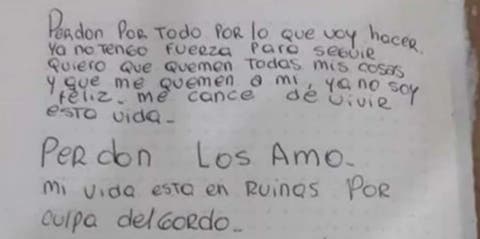 Perdon Por Todo Por lo que voy hacer.
Ya no Tengo Fuerza para seguir
Quiero que quemen Todas mis cosas
y que me quemen a mi, ya no soy
Feliz. me cance de vivir
esta vida.
Perdon Los Amo.
mi vida esta en Ruinas Por
culpa del Gordo.